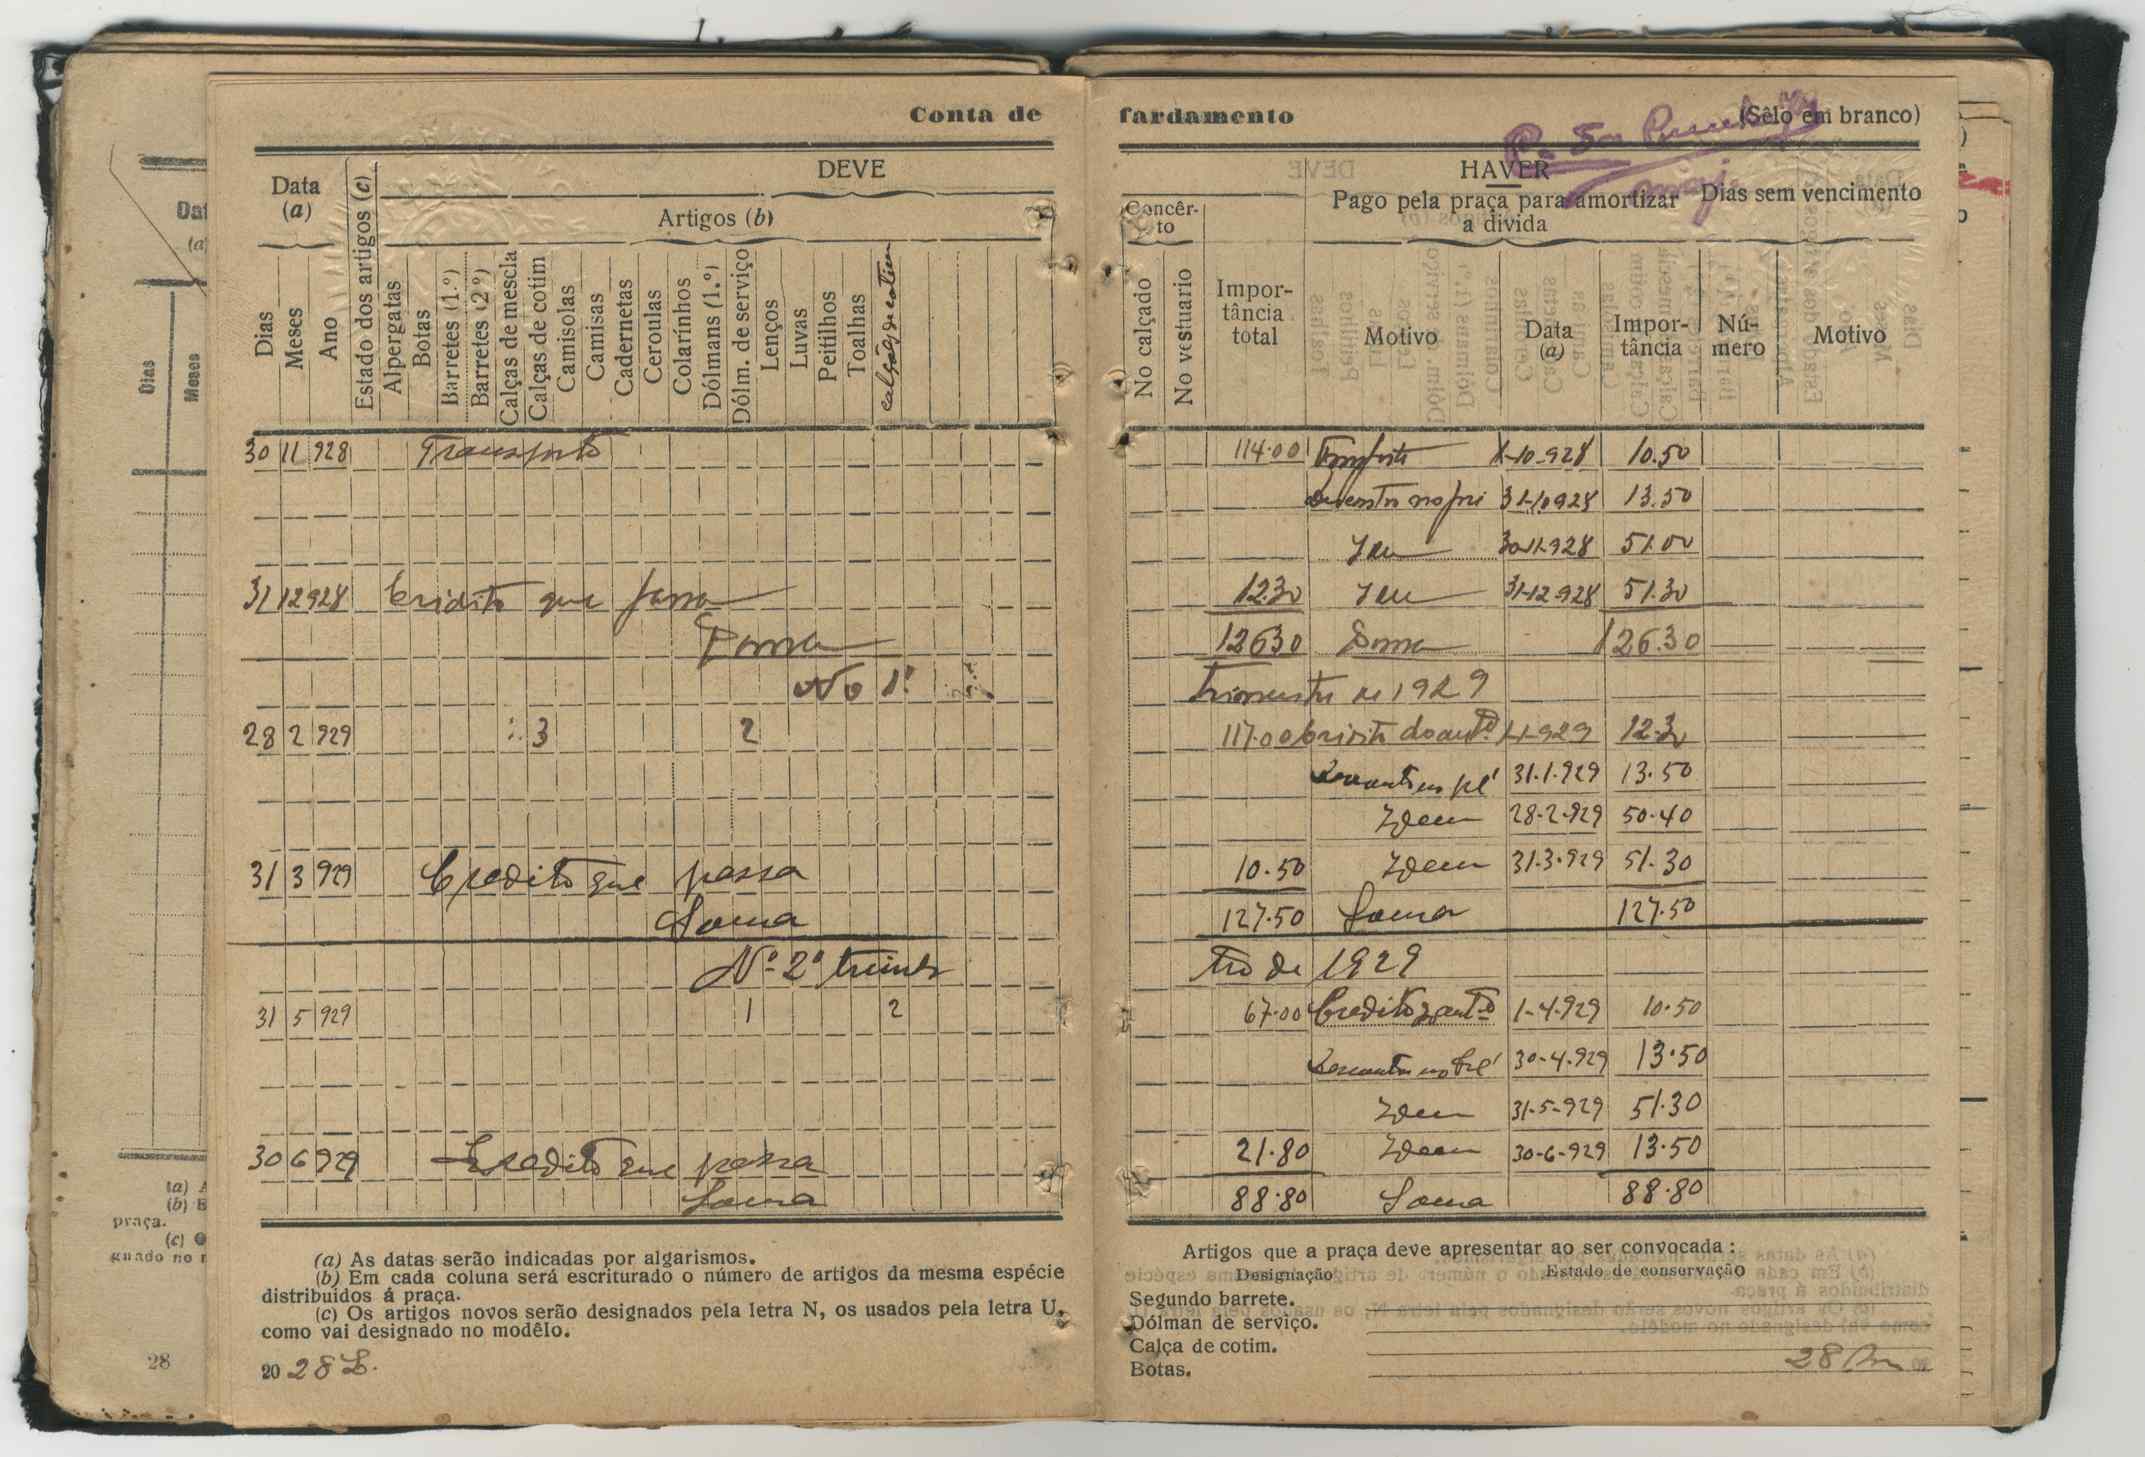 Conta de fardamento (Sêlo em branco)
DEVE
HAVER
Data
(a)
Estado dos artigos (c)
Artigos (b)
Concêr-
to
Pago pela praça para amortizar
a divida
Dias sem vencimento
Dias
Meses
Ano
Alpergatas
Botas
Barretes (1.º)
Barretes (2.º)
Calças de mescla
Calças de cotim
Camisolas
Camisas
Cadernetas
Ceroulas
Colarinhos
Dólmans (1.º)
Dólm. de serviço
Lenços
Luvas
Peitilhos
Toalhas
calções de cotim
No calçado
No vestuario
Impor-
tância
total
Motivo
Data
(a)
Impor-
tância
Nú-
mero
Motivo
30 11 928 Transporte 114.00 Transporte 1-10-928 10.50
Desconto no pré 31-10928 13.50
Idem 30-11-928 51.00
31 12 928 Credito que passa 12.30 Idem 31-12-928 51.30
Soma 126.30 Soma 126.30
No 1º trimestre de 1929
28 2 929 3 2 117.00 Credito do antº 1-1-929 12.30
Desconto no pré 31.1.929 13.50
Idem 28-2-929 50.40
31 3 929 Credito que passa 10.50 Idem 31.3.929 51.30
Soma 127.50 Soma 127.50
Nº 2º trimestre de 1929
31 5 929 1 2 67.00 Credito do antº 1-4-929 10.50
Desconto no pré 30-4-929 13.50
Idem 31-5-929 51.30
30 6 929 Credito que passa 21.80 Idem 30-6-929 13.50
Soma 88.80 Soma 88.80
(a) As datas serão indicadas por algarismos.
(b) Em cada coluna será escriturado o número de artigos da mesma espécie
distribuidos á praça.
(c) Os artigos novos serão designados pela letra N, os usados pela letra U,
como vai designado no modêlo.
20 28
Artigos que a praça deve apresentar ao ser convocada :
Designação Estado de conservação
Segundo barrete.
Dólman de serviço.
Calça de cotim.
Botas.
28
Dias
Meses
praça.
28